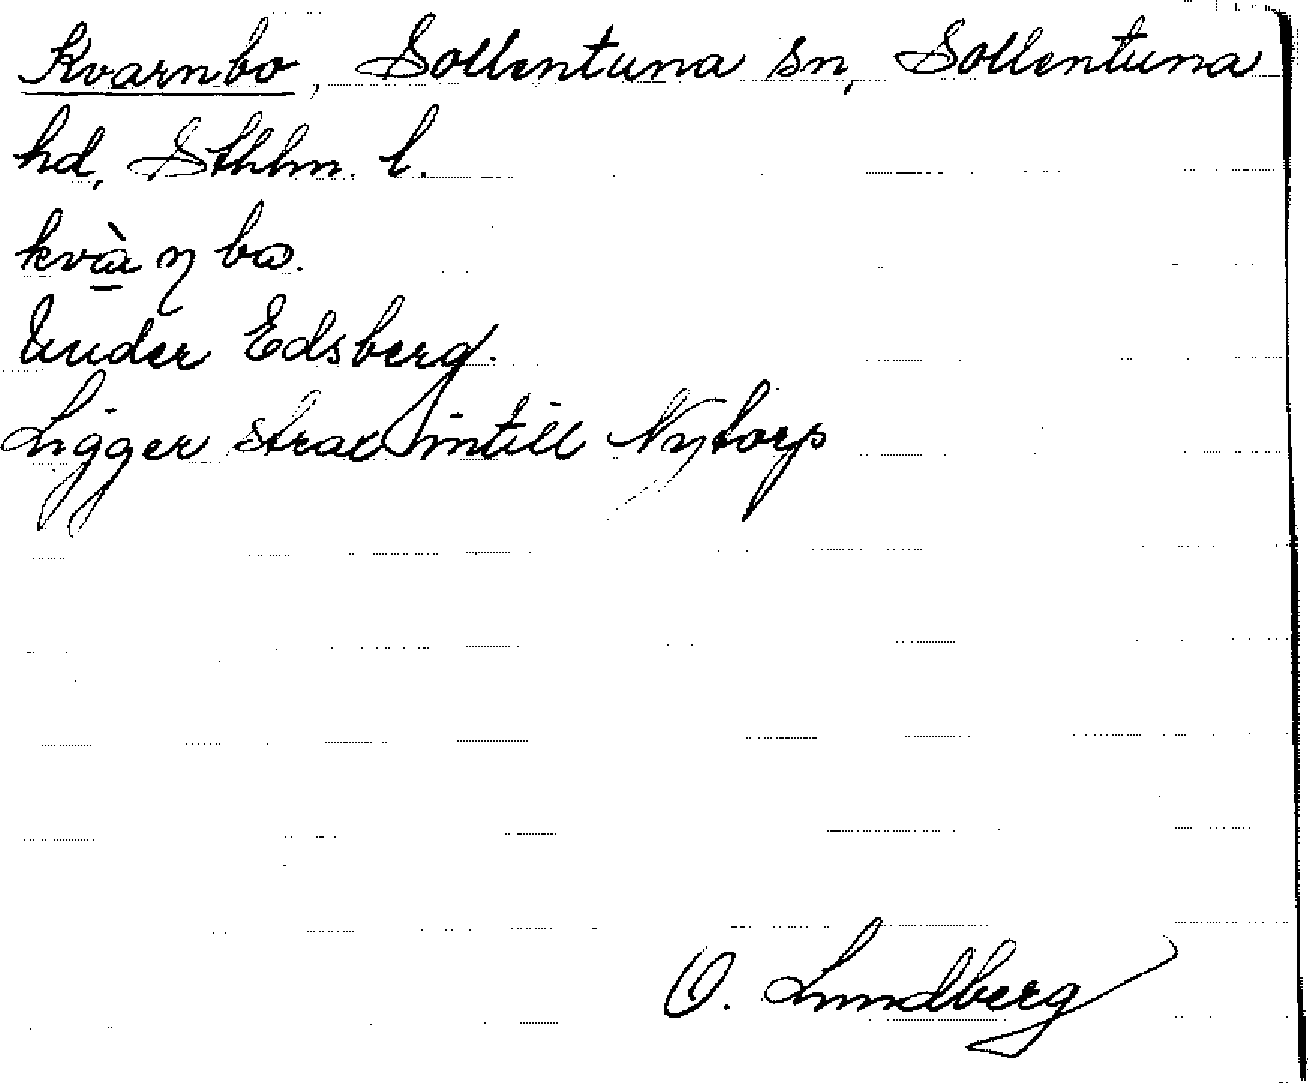 Kvarnbo, Sollentuna sn, Sollentuna
hd, Sthlm. l.
Under Edsberg.
Ligger strax intill Nytorp
O. Lundberg